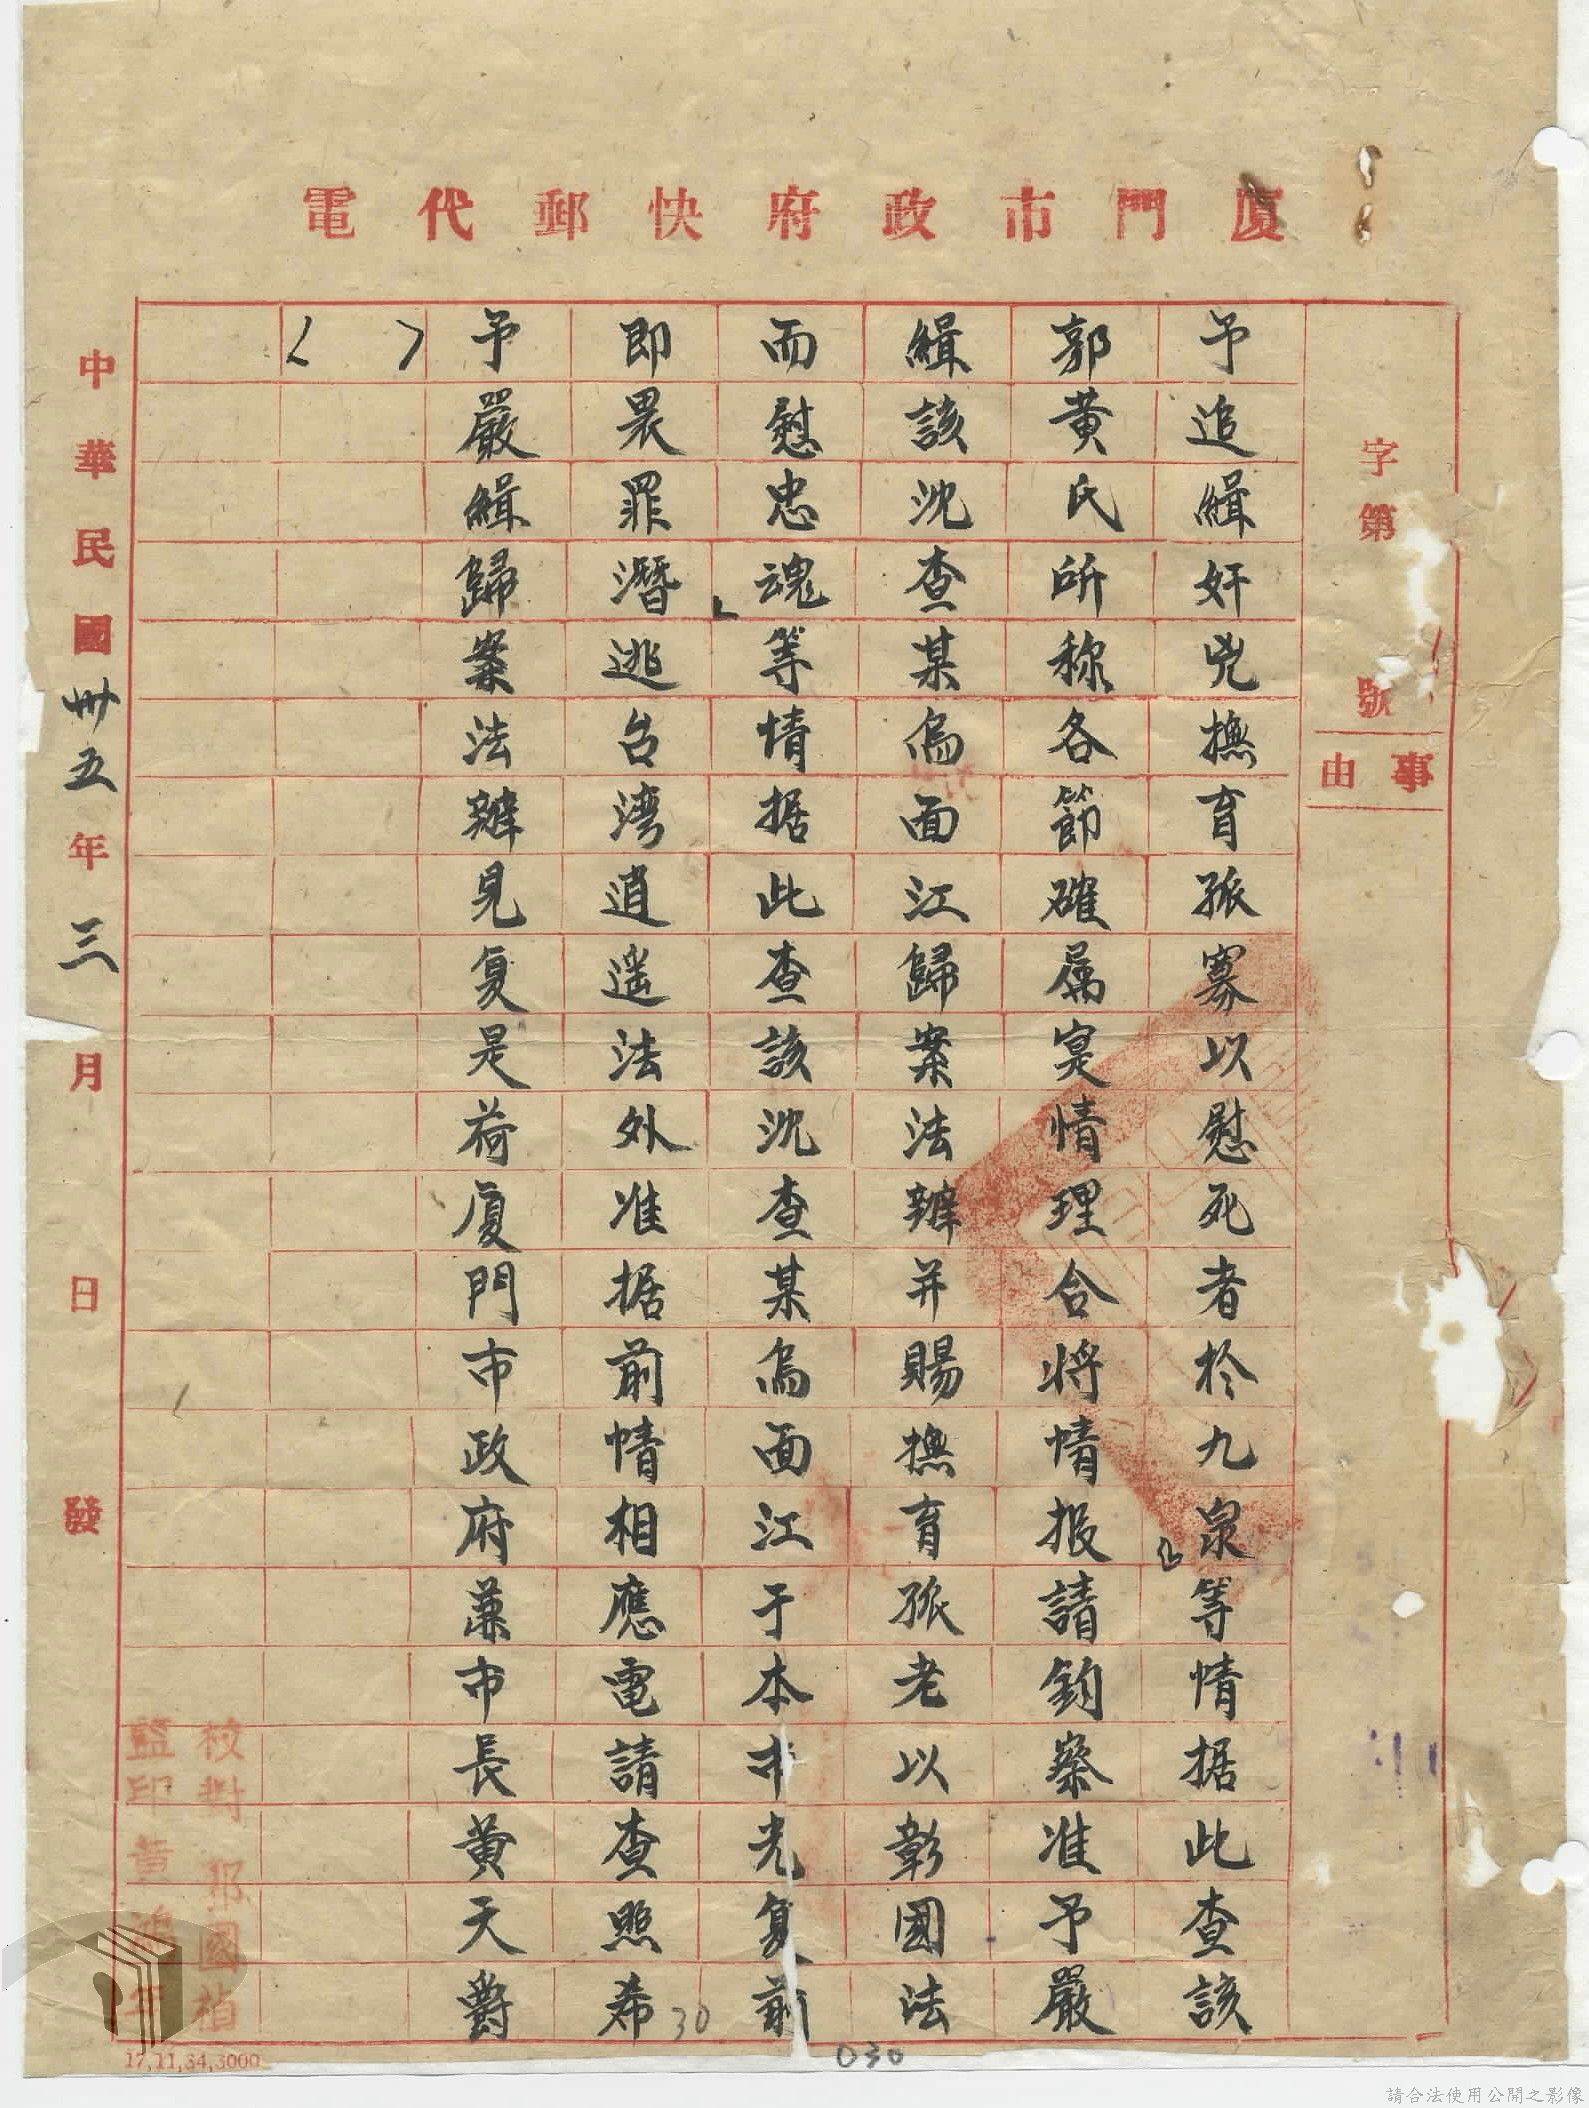 廈門市政府快郵代電
字第
號
事由
予追緝奸兇撫育孤寡以慰死者於九泉」等情据此查該
郭黃氏所称各節確属寔情理合将情报請鈞察准予嚴
緝該沈查某烏面江歸案法辦并賜撫育孤老以彰國法
而慰忠魂」等情据此查該沈查某烏面江于本市光复前
即畏罪潛逃台湾逍遥法外准据前情相應電請查照希
予嚴緝歸案法辦見复是荷廈門市政府兼市長黃天爵
校對 鄂國楨
監印 黃
中華民國卅五年三月日發
17,11,34,3000
30
030
請合法使用公開之影像